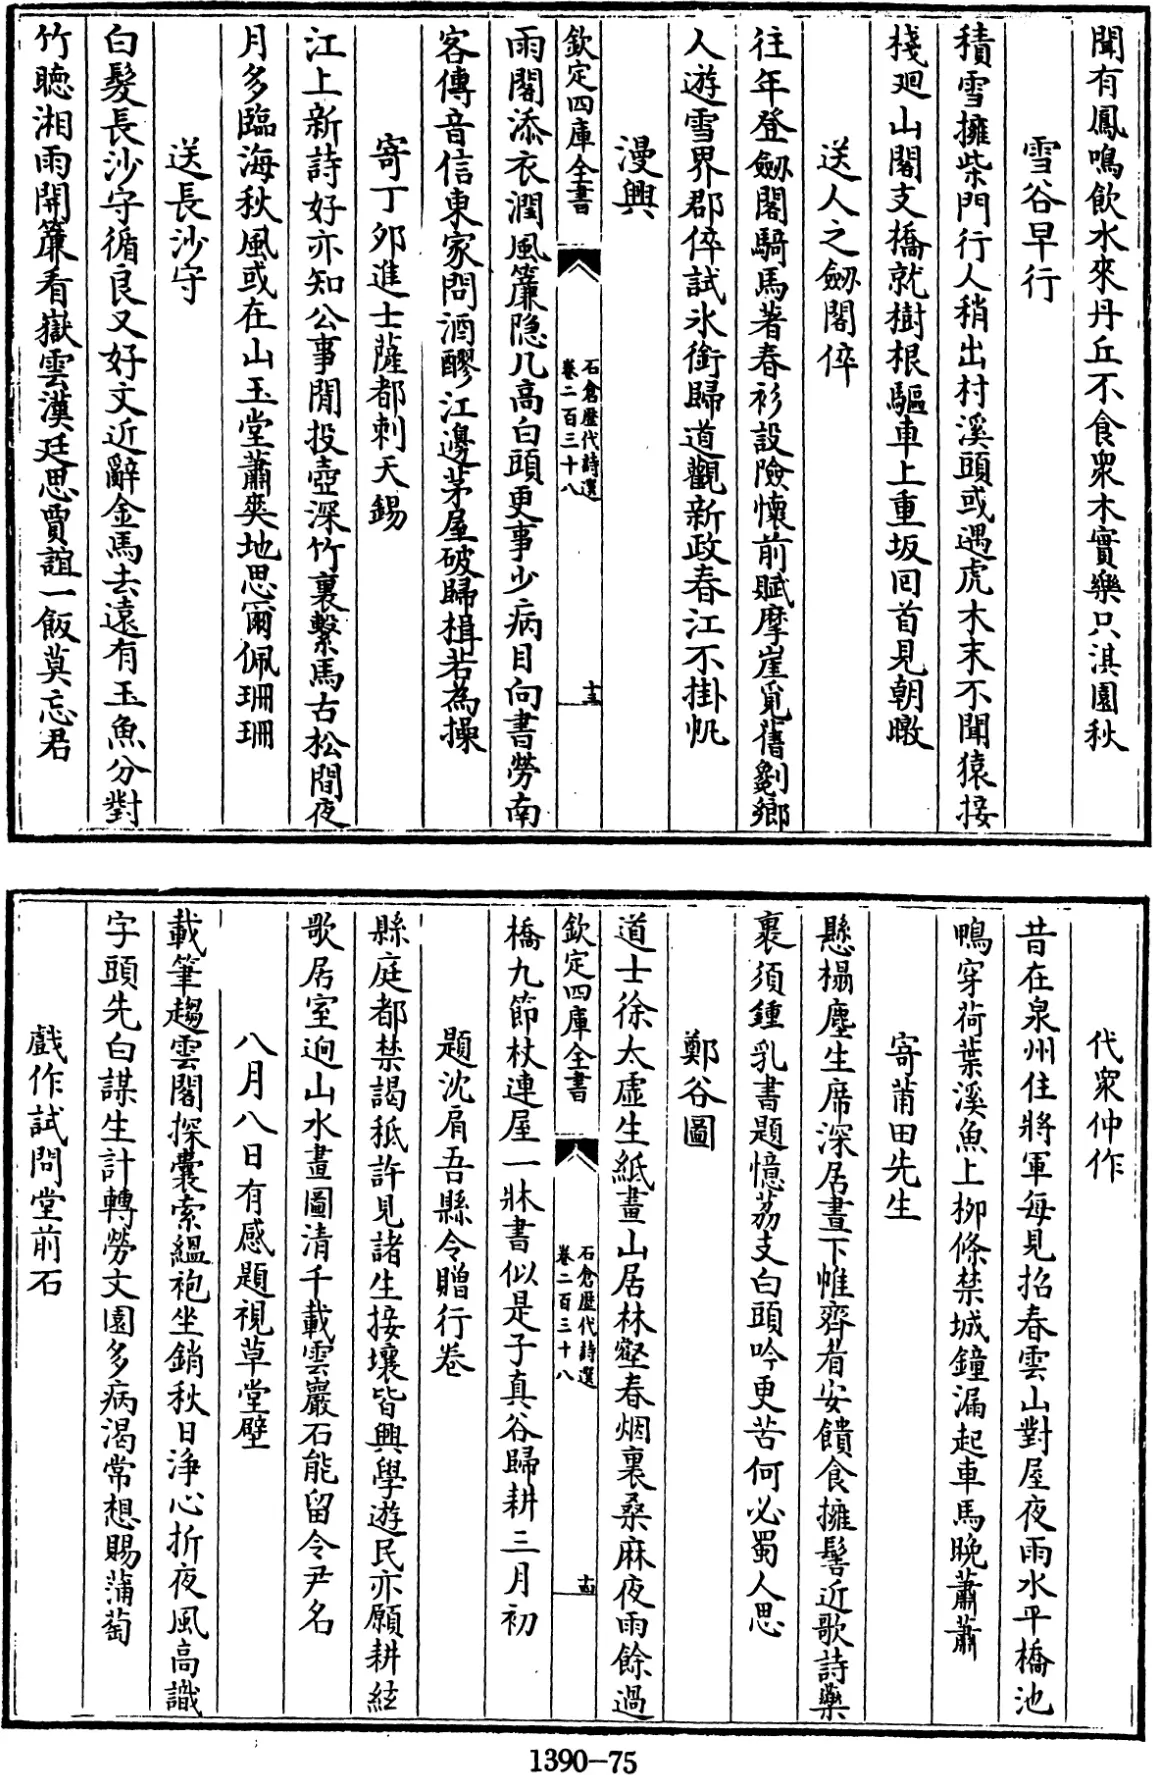 聞有鳳鳴飲水來丹丘不食衆木實樂只淇園秋
雪谷早行
積雪擁柴門行人稍出村溪頭或遇虎木末不聞猿接
棧廻山閣支橋就樹根驅車上重坂回首見朝暾
送人之劒閣倅
往年登劒閣騎馬著春衫設險懷前賦摩崖覓舊劖鄉
人遊雪界郡倅試氷銜歸道觀新政春江不掛帆
漫興
欽定四庫全書
石倉歷代詩選
卷二百三十八
十三
雨閣添衣潤風簾隠几高白頭更事少病目向書勞南
客傳音信東家問酒醪江邊茅屋破歸楫若為操
寄丁夘進士薩都剌天錫
江上新詩好亦知公事閒投壺深竹裏繫馬古松間夜
月多臨海秋風或在山玉堂蕭爽地思爾佩珊珊
送長沙守
白髮長沙守循良又好文近辭金馬去遠有玉魚分對
竹聴湘雨開簾看嶽雲漢廷思賈誼一飯莫忘君
代衆仲作
昔在泉州住將軍每見招春雲山對屋夜雨水平橋池
鴨穿荷葉溪魚上栁條禁城鐘漏起車馬晚蕭蕭
寄莆田先生
懸榻塵生席深居晝下帷齊眉安饋食擁髻近歌詩藥
裹須鍾乳書題憶茘支白頭吟更苦何必蜀人思
鄭谷圖
道士徐太虚生紙畫山居林壑春烟裏桑麻夜雨餘過
欽定四庫全書
石倉歷代詩選
卷二百三十八
十四
橋九節杖連屋一牀書似是子真谷歸耕三月初
題沈肩吾縣令贈行卷
縣庭都禁謁秪許見諸生接壤皆興學遊民亦願耕絃
歌居室逈山水畫圖清千載雲巖石能留令尹名
八月八日有感題視草堂壁
載筆趨雲閣探囊索縕袍坐銷秋日淨心折夜風高識
字頭先白謀生計轉勞文園多病渴常想賜蒲萄
戲作試問堂前石
1390-75